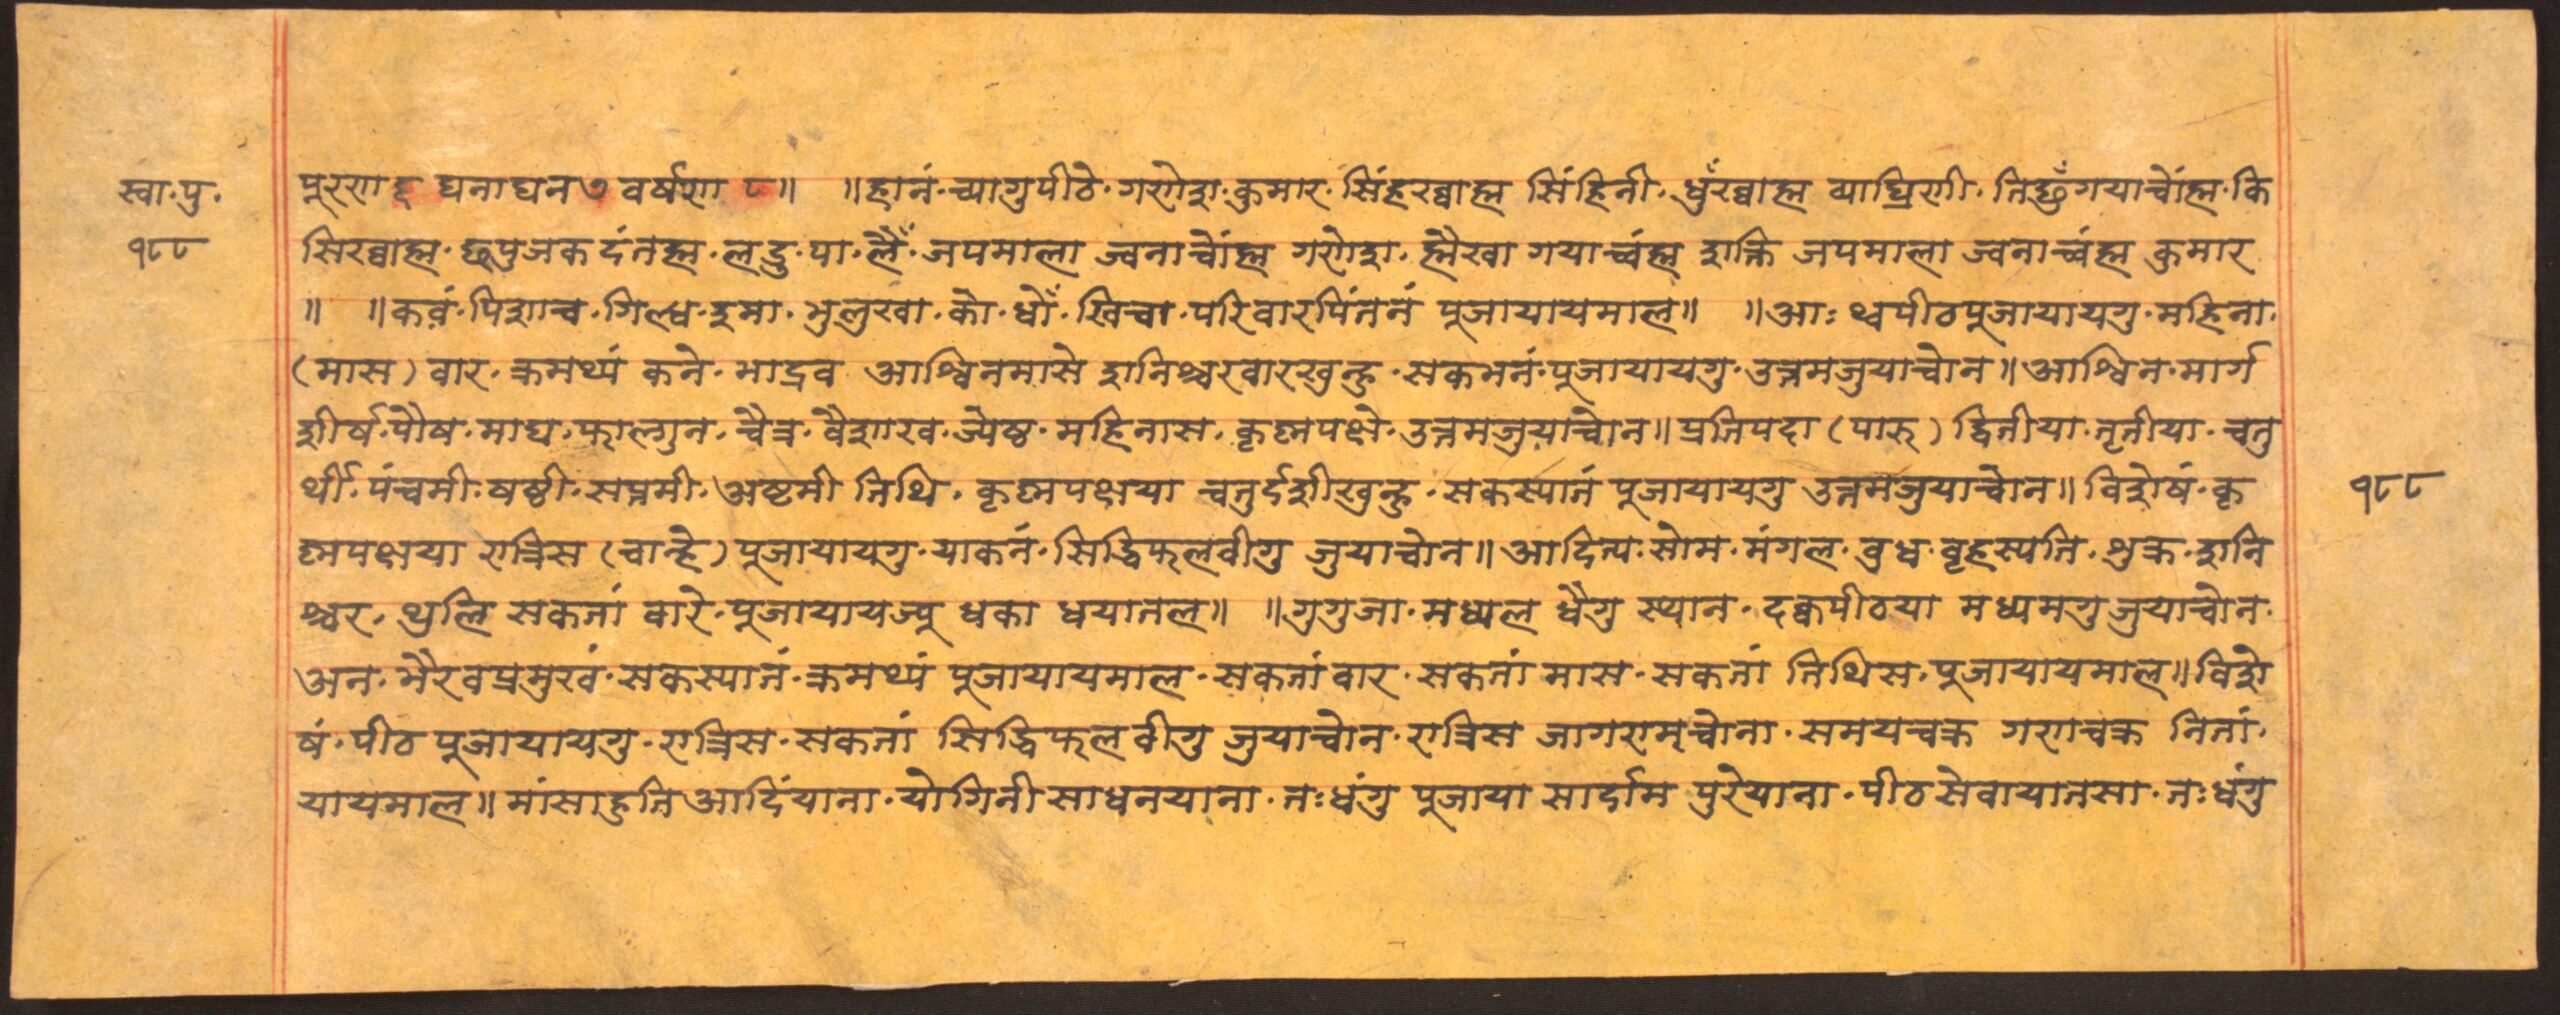 स्वा.पु.
१८८
पूरण६ घनाघन७ वर्षण ८॥ ॥हानं.च्यागुपीठे.गणेश.कुमार.सिंहख्वाह्म सिंहिनी.धुँख्वाह्म व्याघ्रिणी.
सिख्वाह्म.छपुजक दंतह्म.लड्डु.पा.जपमाला ज्वनाचोंह्म गणेश.गयाच्वंह्म शक्ति जपमाला ज्वनाच्वंह्म कुमार
॥ ॥कवं.पिशाच.गिल्ध.इमा.भुलुखा.को.धों.खिचा.परिवारपिंतनं पूजायायमाल॥ ॥आः थ्वपीठपूजायायगु.महिना.
(मास) वार.क्रमथ्यं कने.भाद्रव आश्विनमासे शनिश्चरवारखुन्हु.सकभनं.पूजायायगु.उत्तमजुयाचोन॥आश्विन.मार्ग
शीर्ष.पौष.माघ.फाल्गुन.चैत्र.वैशाख.ज्येष्ठ.महिनास.कृष्णपक्षे.उत्तमजुयाचोन॥प्रतिपदा (पारु) द्वितीया.तृतीया.चतु
र्थी.पंचमी.षष्ठी.सप्तमी.अष्टमी तिथि.कृष्णपक्षया चतुर्दशीखुन्हु.सकस्यानं पूजायायगु उत्तमजुयाचोन॥विशेषं.कृ
१८८
ष्णपक्षया रात्रिस (चान्हे) पूजायायगु.याकनं.सिद्धिफलवीगु जुयाचोन॥आदित्य.सोम.मंगल.बुध.बृहस्पति.शुक्र.शनि
श्चर.थुलि सकतां वारे.पूजायायज्यु धका धयातल॥ ॥गुगुजा.मध्यल धैगु स्थान.दक्वपीठया मध्यमगु जुयाचोन.
अन.भैरवप्रमुखं.सकस्यानं.क्रमथ्यं पूजायायमाल.सकतां वार.सकतां मास.सकतां तिथिस.पूजायायमाल॥विशे
षं.पीठ पूजायायगु.रात्रिस.सकतां सिद्धिफलवीगु जुयाचोन.रात्रिस जागरणम्चोना.समयचक्र गणचक्र नितां.
यायमाल॥मांसाहुति आदिंयाना.योगिनी साधनयाना.तःधंगु पूजाया सार्दाम पुरेयाना.पीठसेवायातसा.तःधंगु